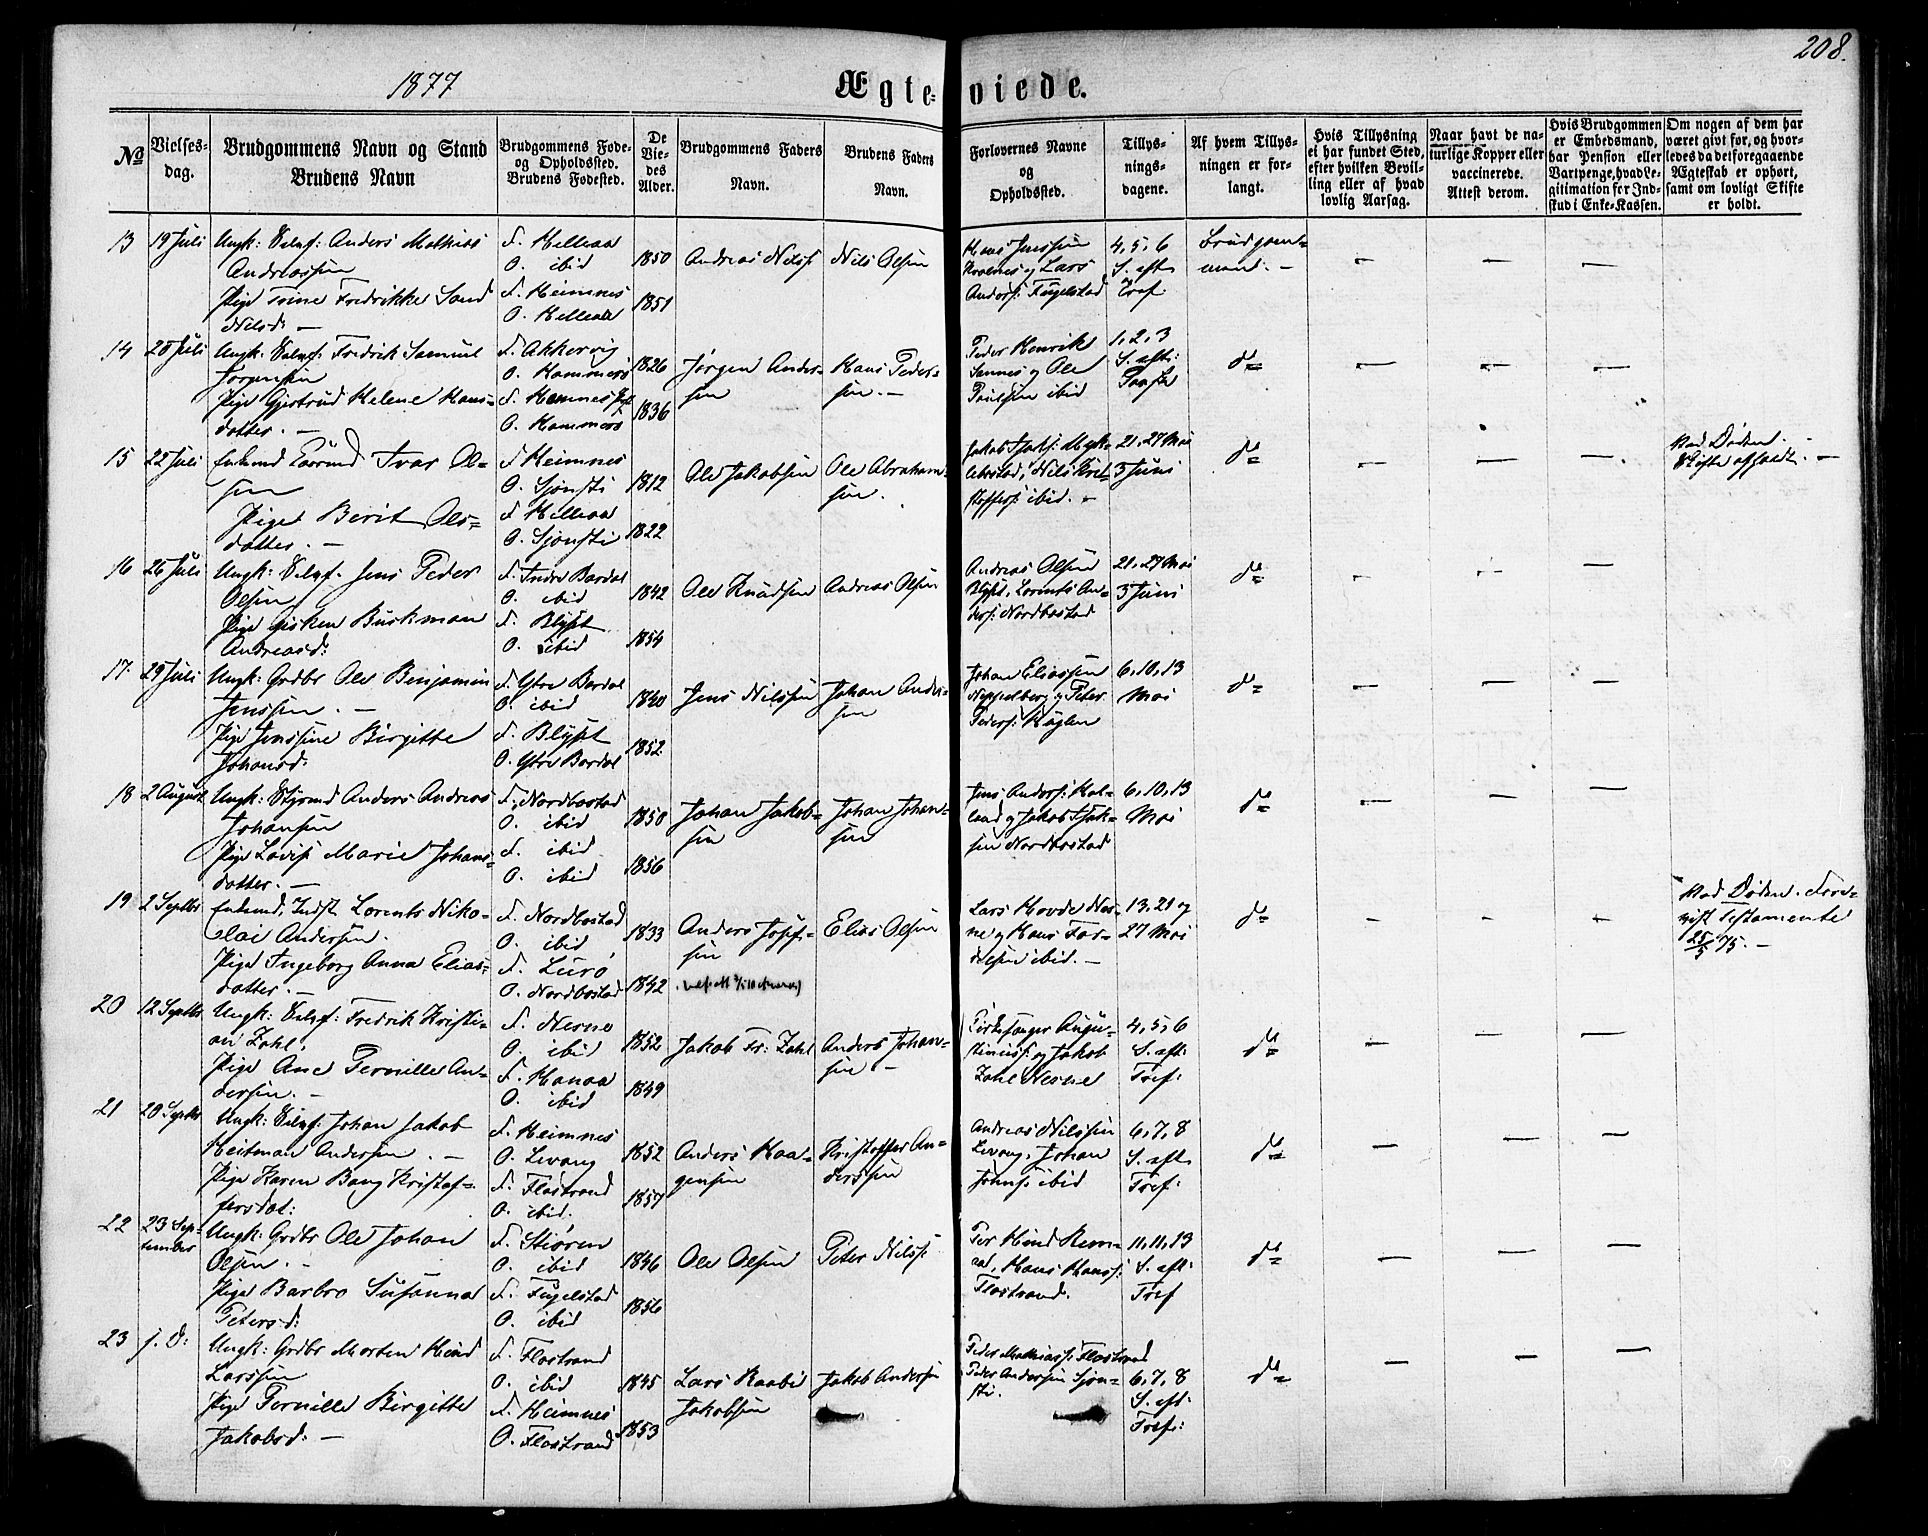 1877
Ægte=
viede.
208.
No
Vielses-
dag.
Brudgommens Navn og Stand
Brudens Navn
Brudgommens Føde-
og Opholdssted.
Brudens Fødested.
De
Vie-
des
Alder.
Brudgommens Faders
Navn.
Brudens Faders
Navn.
Forlovernes Navne
og
Opholdssted.
Tillys-
nings-
dagene.
Af hvem Tillys-
ningen er for-
langt.
Hvis Tillysning
ei har fundet Sted,
efter hvilken Bevil-
ling eller af hvad
lovlig Aarsag.
Naar havt de na-
turlige Kopper eller
vaccinerede.
Attest derom.
Hvis Brudgommen
er Embedsmand,
har Pension eller
Vartpenge, hvad Le-
gitimation for Ind-
skud i Enke-Kassen.
Om nogen af dem har
været givt før, og hvor-
ledes da det foregaaende
Ægteskab er ophørt,
samt om lovligt Skifte
er holdt.
13 19 Juli Ungk: Selvf: Anders Mathias
Andreassen
Pige Trine Fredrikke Sand
Nilsd: —
F. Helleaa
O. ibid
F. Heimnes
O. Helleaa
1850
1851
Andreas Nilss:
Nils Olsen
Hans Jenssen
og Lars
Anders: Fugelstad
4, 5, 6
S. eft.
Tref.
Brudgom-
mand. —
14 20 Juli Ungk: Selvf: Fredrik Samuel
Jørgensen
Pige Gjertrud Helene Hans-
datter. —
F. Akkervig
O. Hammerø
F. Hemnes
O. Hammerø
1826
1836
Jørgen Ander-
sen
Hans Peder-
sen. —
Peder Henrik
Sannes og Ole
Paulsen ibid
1, 2, 3
S. eft:
Paaske
do
15 22 Juli Enkemd Ivar Ol-
sen
Pige Berit Ols-
datter. —
F. Heimnes
O. Sjonsti
F. Helleaa
O. Sjonsti
1812
1822
Ole Jakobsen
Ole Abraham-
sen.
Nils Krist-
offers: ibid. —
21, 27 Mai
3 Juni
do
Ved Døden. —
Skifte afholdt. —
16 26 Juli Ungk: Selvf. Jens Peder
Olsen
Pige Gisken Buskman
Andreasd:
F. Indre Bardal
O. ibid
F. Blyst
O. ibid
1842
1854
Ole Knudsen
Andreas Olsen
Andreas Olsen
Blyst, Lorents An-
ders: Nordbostad
21, 27 Mai
3 Juni
do
17. 29 Juli Ungk: Grdbr Ole Benjamin
Jenssen. —
Pige Jenssine Birgitte
Johansd:
F. Ytre Bardal
O. ibid
F. Blyst
O. Ytre Bardal
1840
1852
Jens Nilssen
Johan Ander-
sen
Johan Eliassen
og Peter
Peders: Kuglen
6, 10, 13
Mai
do
18 2 August Ungk: Styrmd Anders Andreas
Johansen
Pige Lovise Marie Johans-
datter. —
F. Nordbostad
O. ibid
F. ibid
O. ibid
1850
1856
Johan Jakob-
sen
Johan Johan-
sen
Jens Anders: Hol-
land og Jakob Isak-
sen Nordbostad
6, 10, 13
Mai
do
19 2 Septbr Enkemd, Indst Lorents Niko-
lai Andersen.
Pige Ingeborg Anna Elias-
datter. —
F. Nordbostad
O. ibid
F. Lurø
O. Nordbostad
1833
1842
Anders Josef-
sen
Elias Olsen
Lars Hovde Nes-
ne og Hans
ibid. —
13, 21 og
27 Mai
do
Ved Døden.
Testamente
25/5 75. —
20 12 Septbr Ungk: Selvf: Fredrik Kristi-
an Zahl.
Pige Ane Pernille An-
dersen. —
F. Nesne
O. ibid
F. Hanaa
O. ibid
1852
1849
Jakob Fr: Zahl
Anders Johan-
sen —
Kirkesanger Augu-
stinuss: og Jakob
Zahl Nesne
4, 5, 6
S. eft:
Tref:
do
21 20 Septbr Ungk: Selvf: Johan Jakob
Heitman Andersen. —
Pige Karen Bang Kristof-
fersdat:
F. Heimnes
O. Levang
F. Flostrand
O. ibid.
1852
1857
Anders Haa-
gensen
Kristoffer An-
derssen
Andreas Nilssen
Levang, Johan
Johns: ibid
6, 7, 8
S. eft.
Tref:
do
22 23 Sep-
tember
Ungk: Grdbr Ole Johan
Olsen. —
Pige Barbro Susanna
Petersd:
F. Stiøren
O. ibid
F. Fugelstad
O. ibid
1846
1856
Ole Olsen
Peter Nilss:
Per Hind Rem-
aa, Hans Hanss:
Flostrand.
11, 11, 13
S. eft:
Tref
do
23 s. D: Ungk: Grdbr Morten Hind
Larssen
Pige Pernille Birgitte
Jakobsd: —
F. Flostrand
O. ibid
F. Heimnes
O. Flostrand
1845
1853
Lars Raabi
Jakobsen
Jakob Andersen
Peder Mathiass: Flostrand
Peder Andersen Sjon-
sti.
6, 7, 8
S. eft:
Tref:
do